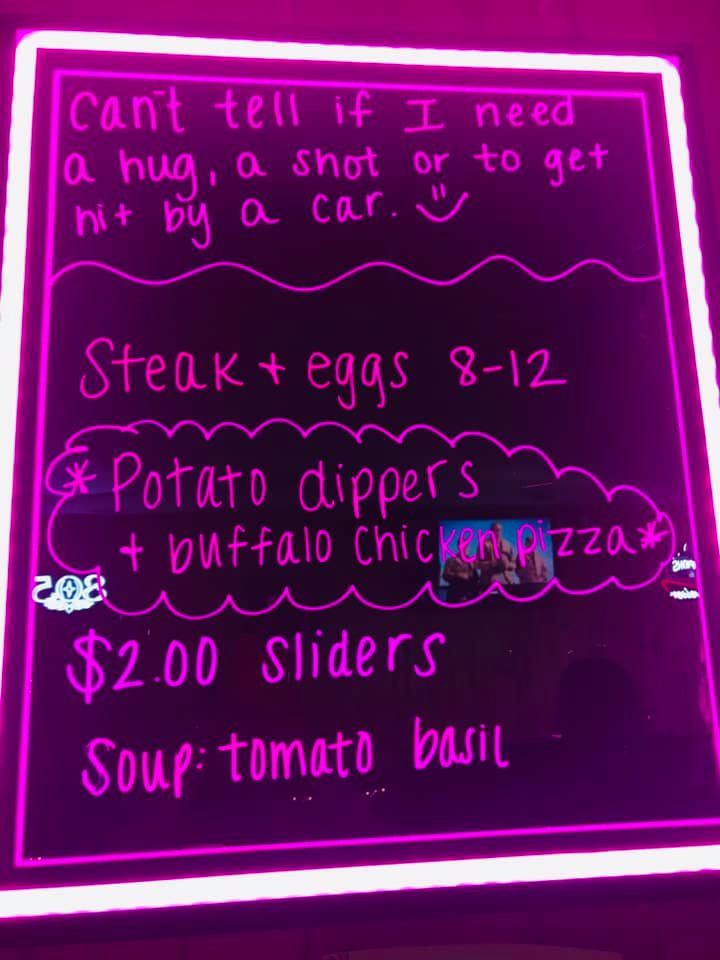 Can't tell if I need
a hug, a shot or to get
hit by a car.
Steak + eggs 8-12
* Potato dippers
+ buffalo chicken pizza *
$2.00 sliders
Soup: tomato basil